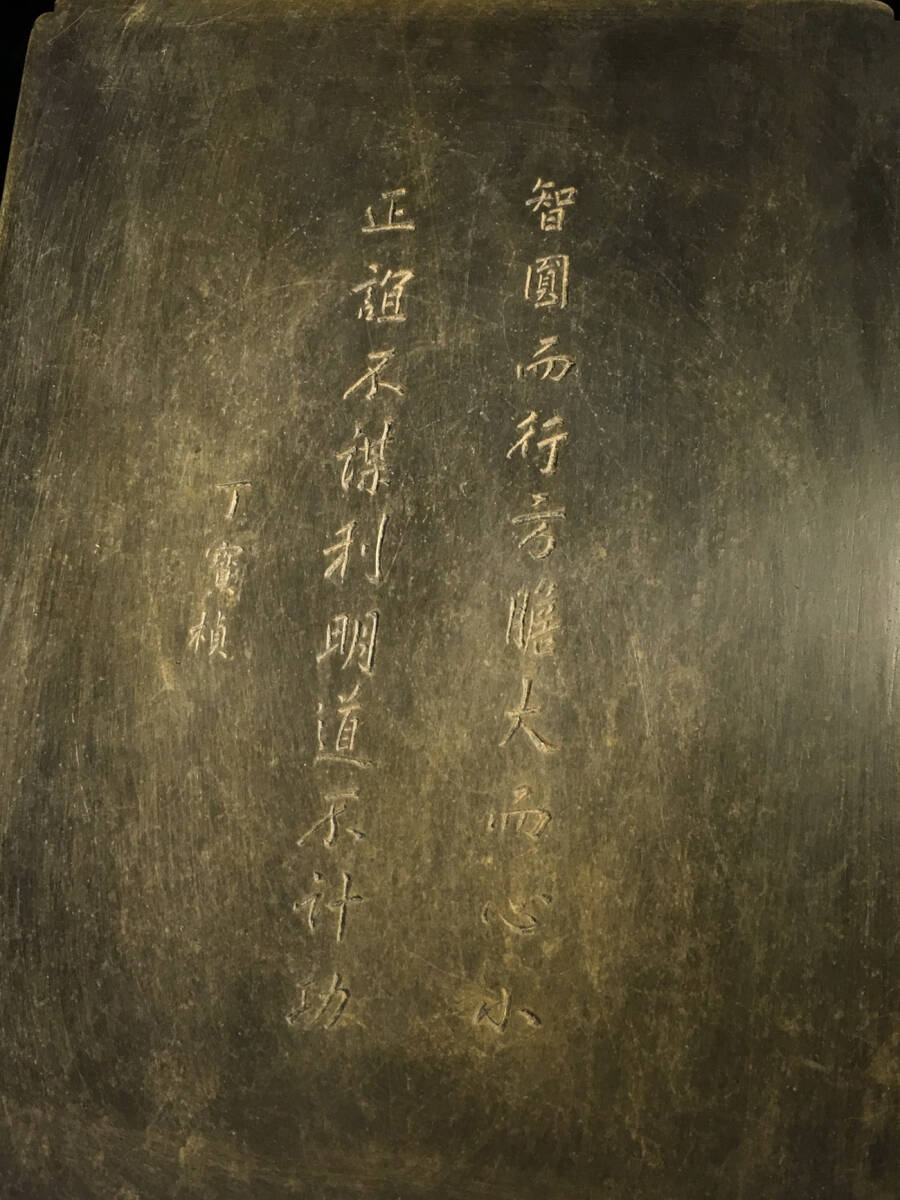 智圓而行方膽大而心小
正誼不謀利明道不計功
丁寶楨